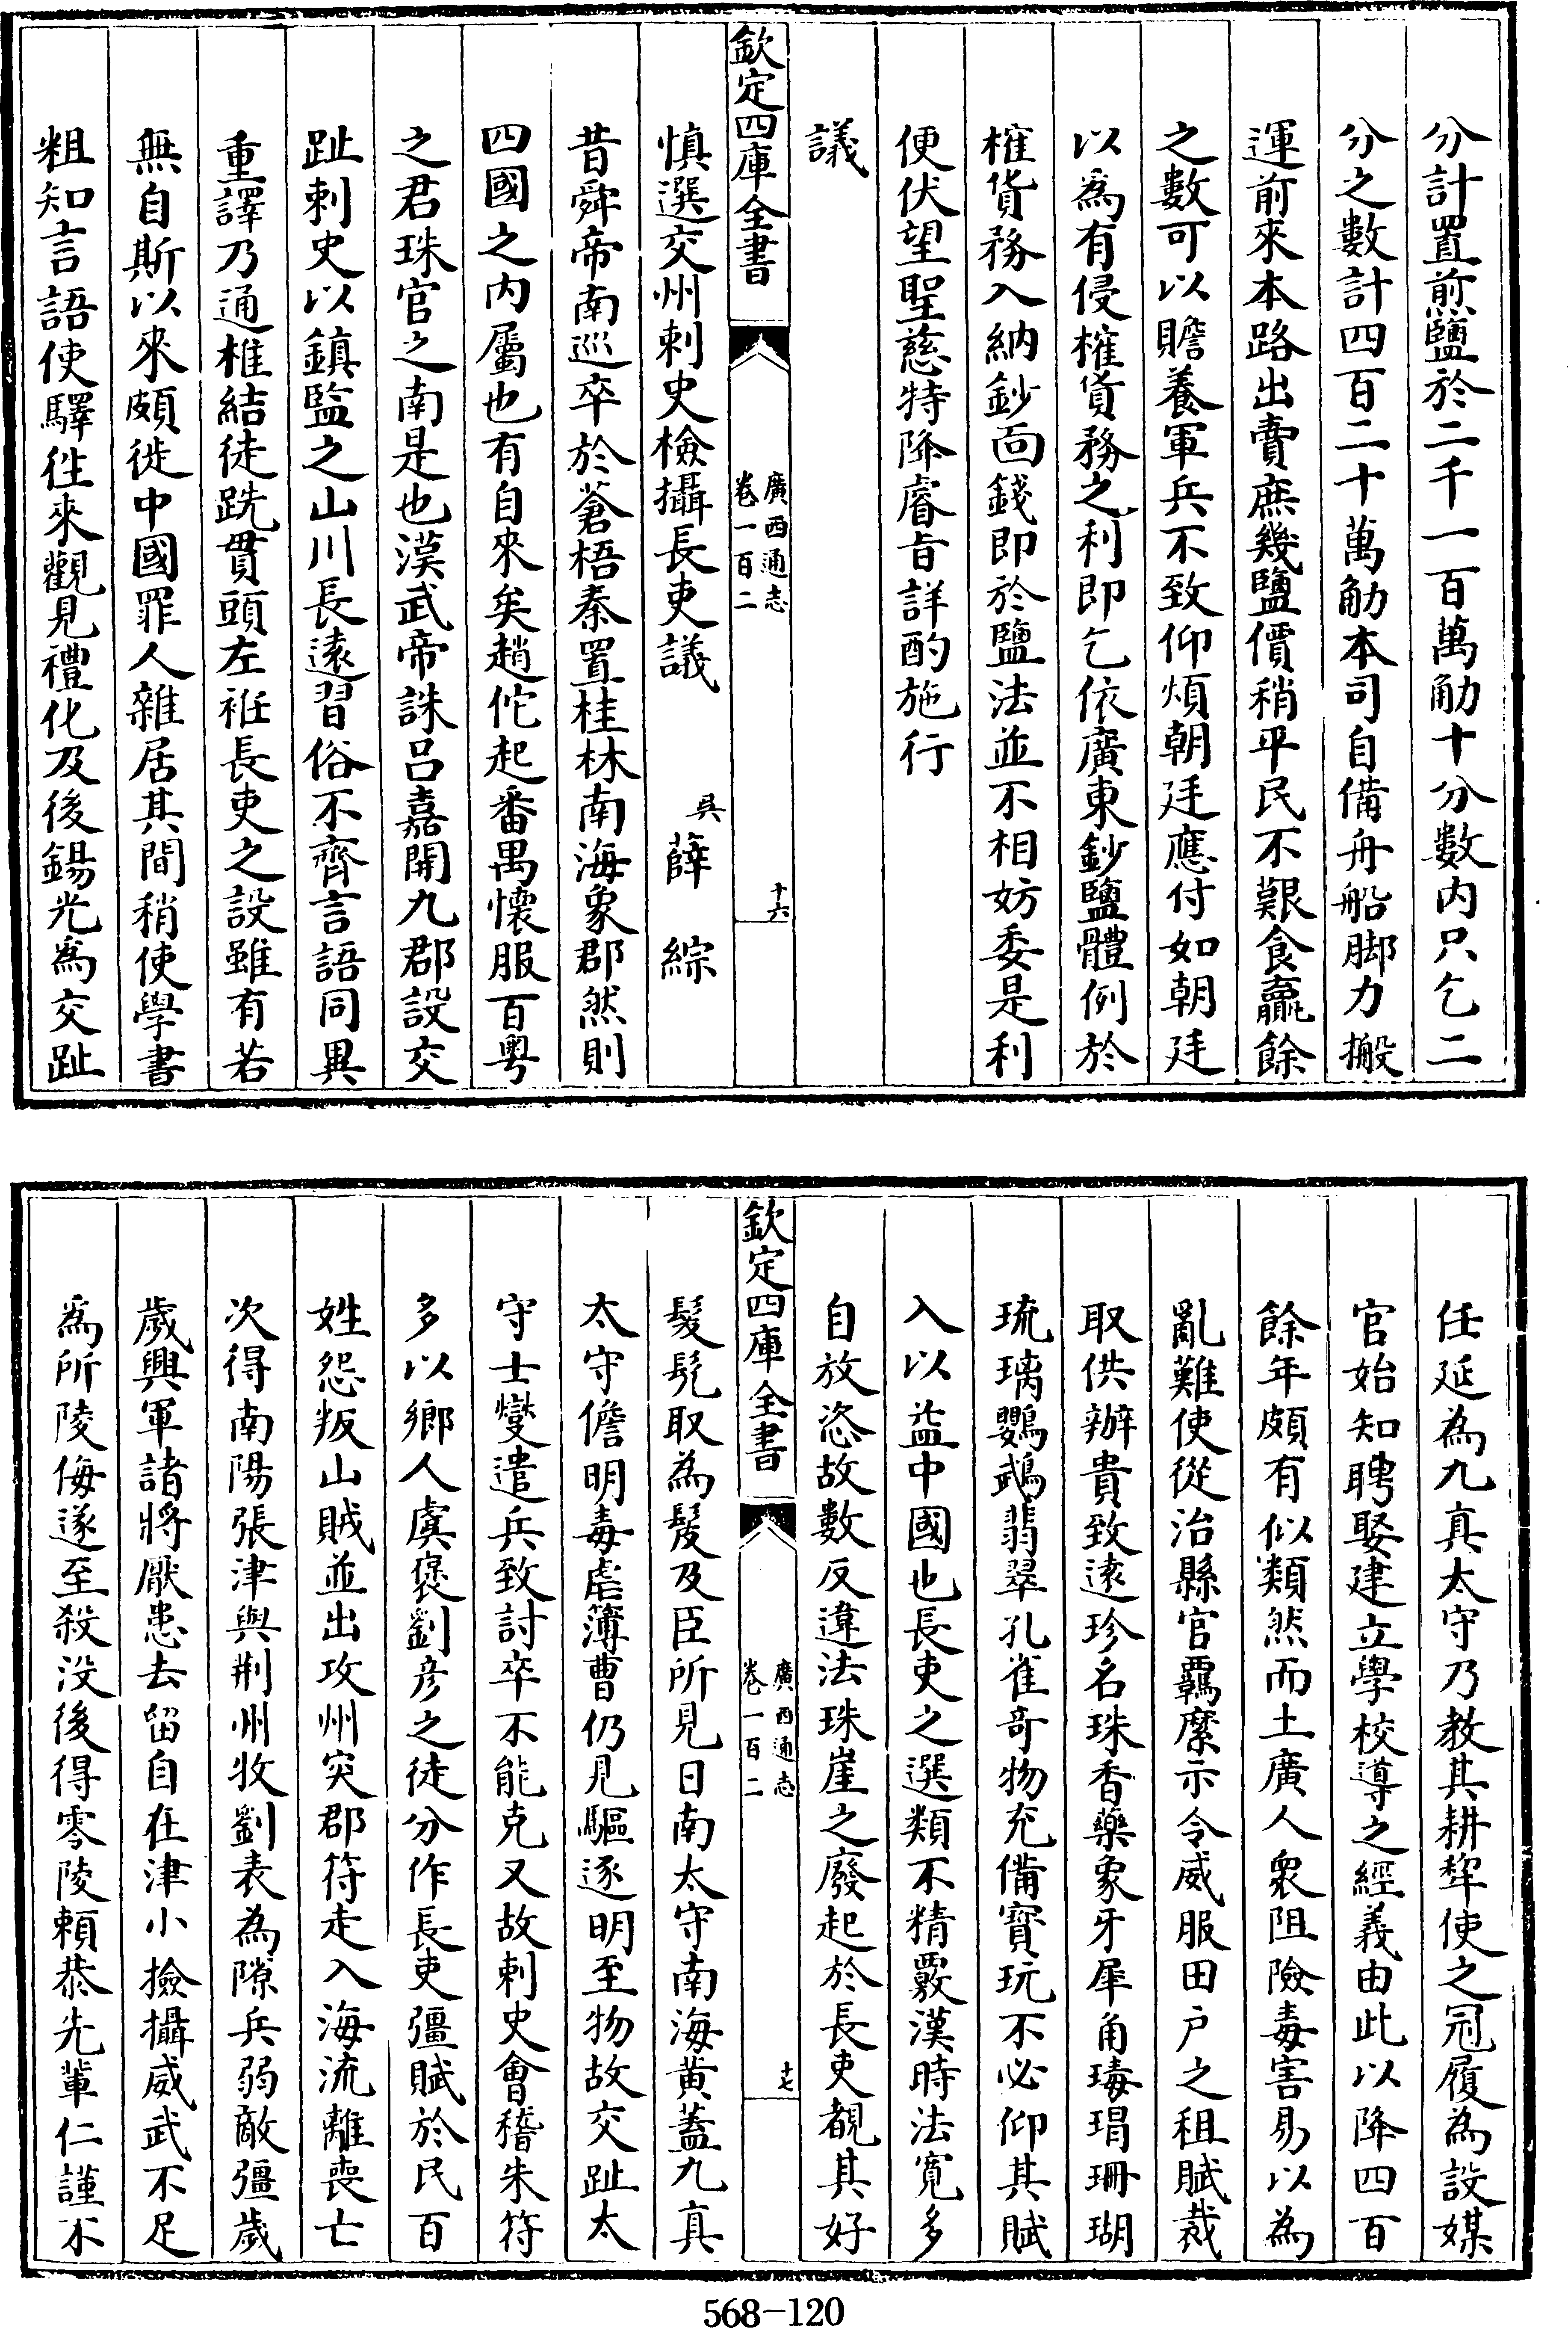 分計置煎鹽於二千一百萬觔十分數内只乞二
分之數計四百二十萬觔本司自備舟船脚力搬
運前來本路出賣庶幾鹽價稍平民不艱食贏餘
之數可以贍養軍兵不致仰煩朝廷應付如朝廷
以爲有侵榷貨務之利即乞依廣東鈔鹽體例於
榷貨務入納鈔面錢即於鹽法並不相妨委是利
便伏望聖慈特降睿旨詳酌施行
議
欽定四庫全書
廣西通志
卷一百二
十六
慎選交州刺史檢攝長吏議
吳
薛綜
昔舜帝南巡卒於蒼梧秦置桂林南海象郡然則
四國之内屬也有自來矣趙佗起番禺懷服百粤
之君珠官之南是也漢武帝誅呂嘉開九郡設交
趾刺史以鎮監之山川長遠習俗不齊言語同異
重譯乃通椎結徒跣貫頭左袵長吏之設雖有若
無自斯以來頗徙中國罪人雜居其間稍使學書
粗知言語使驛往來觀見禮化及後錫光爲交趾
任延為九真太守乃教其耕犂使之冠履為設媒
官始知聘娶建立學校導之經義由此以降四百
餘年頗有似類然而土廣人衆阻險毒害易以為
亂難使從治縣官羈縻示令威服田户之租賦裁
取供辦貴致遠珍名珠香藥象牙犀角瑇瑁珊瑚
琉璃鸚鵡翡翠孔雀奇物充備寳玩不必仰其賦
入以益中國也長吏之選類不精覈漢時法寛多
自放恣故數反違法珠崖之廢起於長吏覩其好
欽定四庫全書
廣西通志
卷一百二
十七
髮髡取為髲及臣所見日南太守南海黄蓋九真
太守儋明毒虐簿曹仍見驅逐明至物故交趾太
守士燮遣兵致討卒不能克又故刺史會稽朱符
多以鄉人虞褒劉彦之徒分作長吏彊賦於民百
姓怨叛山賊並出攻州突郡符走入海流離喪亡
次得南陽張津與荆州牧劉表為隙兵弱敵彊歲
歲興軍諸將厭患去留自在津小撿攝威武不足
爲所陵侮遂至殺没後得零陵賴恭先輩仁謹不
568-120